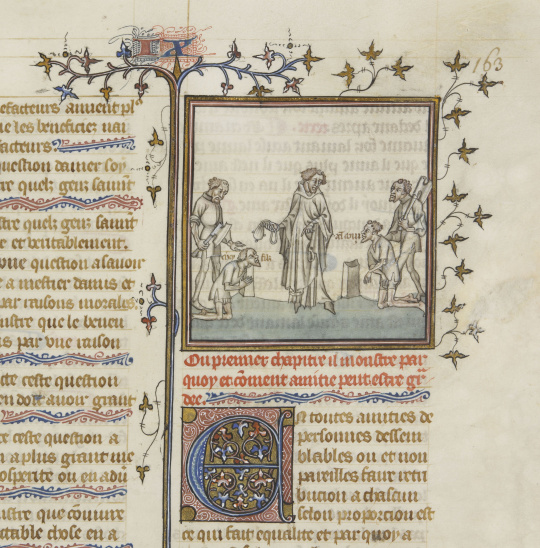 IX
163
efacteurs aiment pl'
ue les beneficiez nai
facteurs.
question damer soy
tre quelz gens sauut
stre quelz gens sauut
e et veritablement.
vne question assauoir
e a mestier damis et
par raisons morales
nstre que le beneu
is par vne raison
ceste question
en doit auoir grant
ce ceste question a
n a plus grant me
osperite ou en adu
nstre que conuiure
table chose en a
filz
Ou premier chapitre il monstre par
quoy et coment amitie peut estre gr
dee.
En toutes amities de
personnes dessem
blables ou et non
pareilles faire retri
bucion a chascun
selon proporcion est
ce qui fait equalite et par quoy a